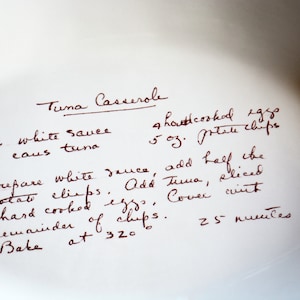 Tuna Casserole
white sauce 4 hardcooked eggs
cans tuna 5 oz. potato chips
prepare white sauce, add half the
potato chips. Add tuna, sliced
hard cooked eggs. Cover with
remainder of chips.
Bake at 320° 25 minutes